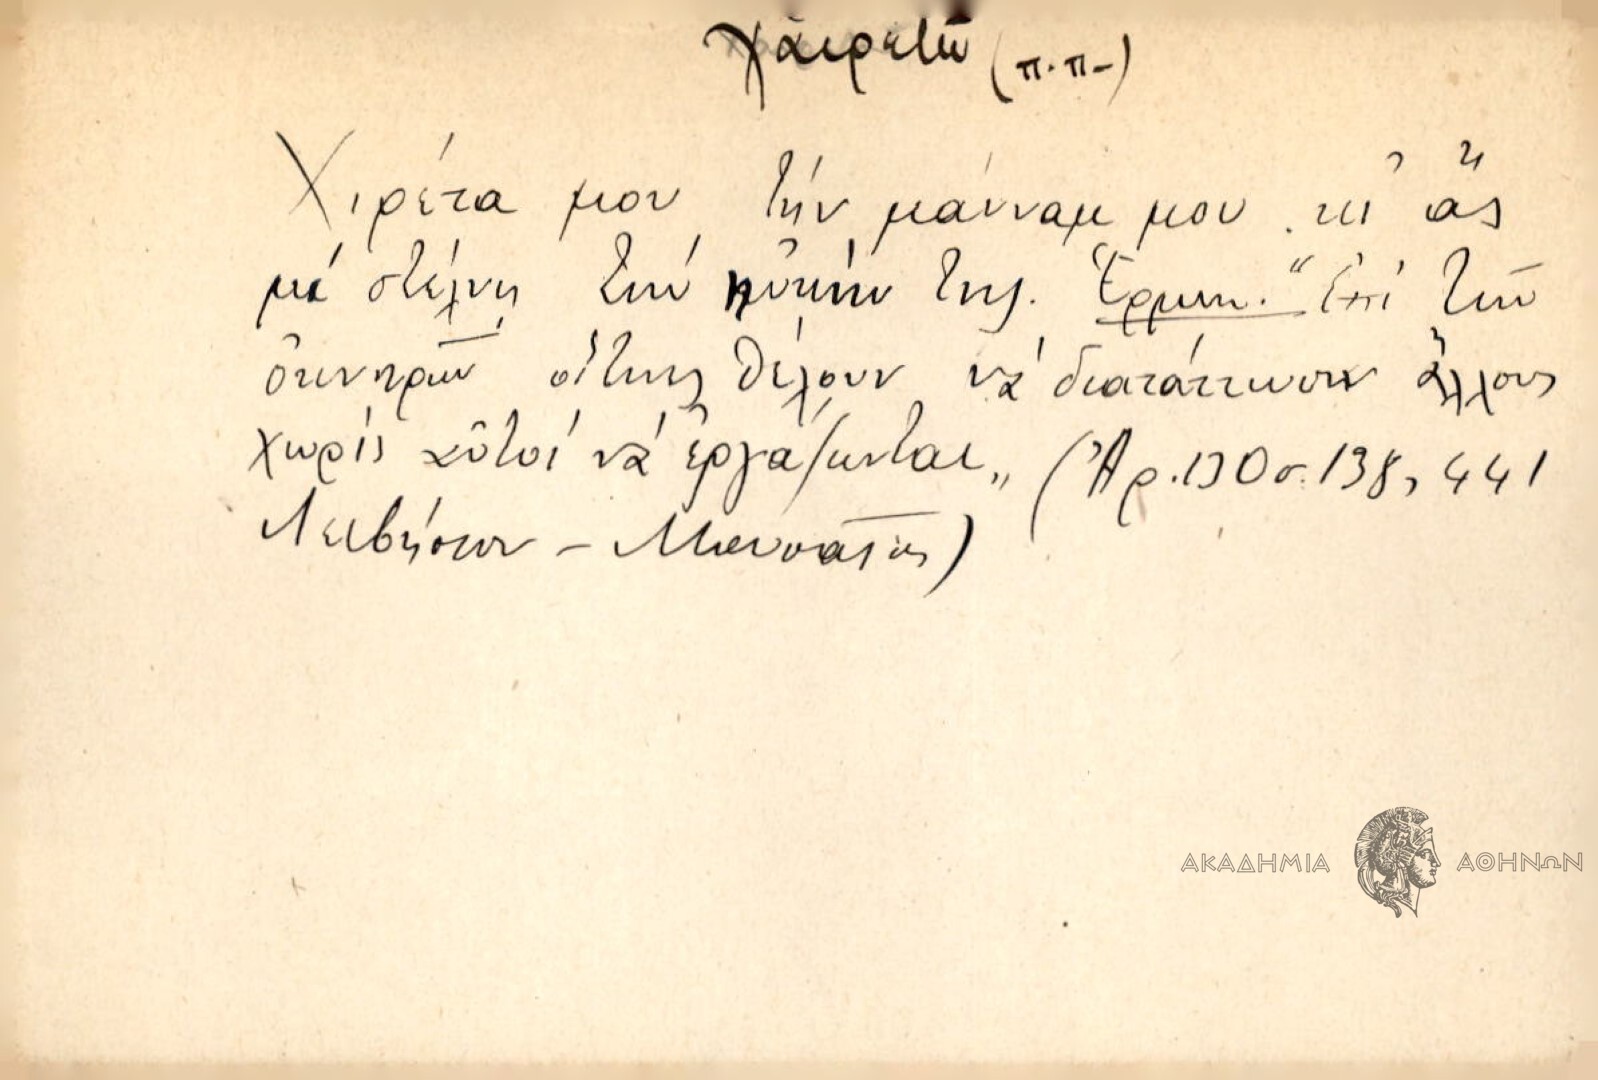 χαιρετῶ (π.π-)
Χιρέτα μου τὴν μάνναμ μου κι' ἂς
μὲ στέλνῃ τὴν εὐκήν της. Ἑρμην. "Ἐπὶ τῶν
ὀκνηρῶν οἵτινες θέλουν νὰ διατάττωσιν ἄλλους
χωρὶς αὐτοὶ νὰ ἐργάζωνται„ (Ἀρ. 130 σ. 138, 441
Λειβήσιον -
ΑΚΑΔΗΜΙΑ ΑΘΗΝΩΝ